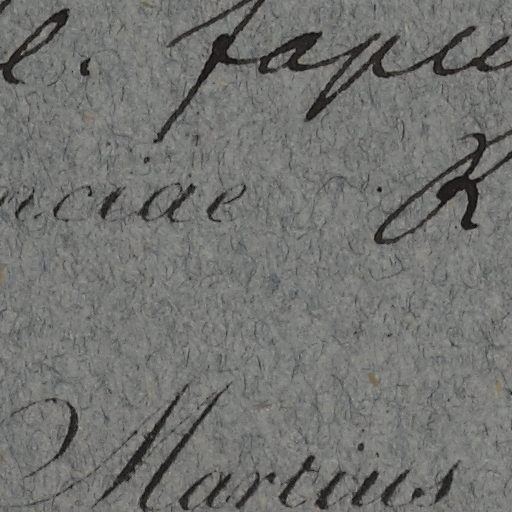 l. fapu
nciae K
Martius